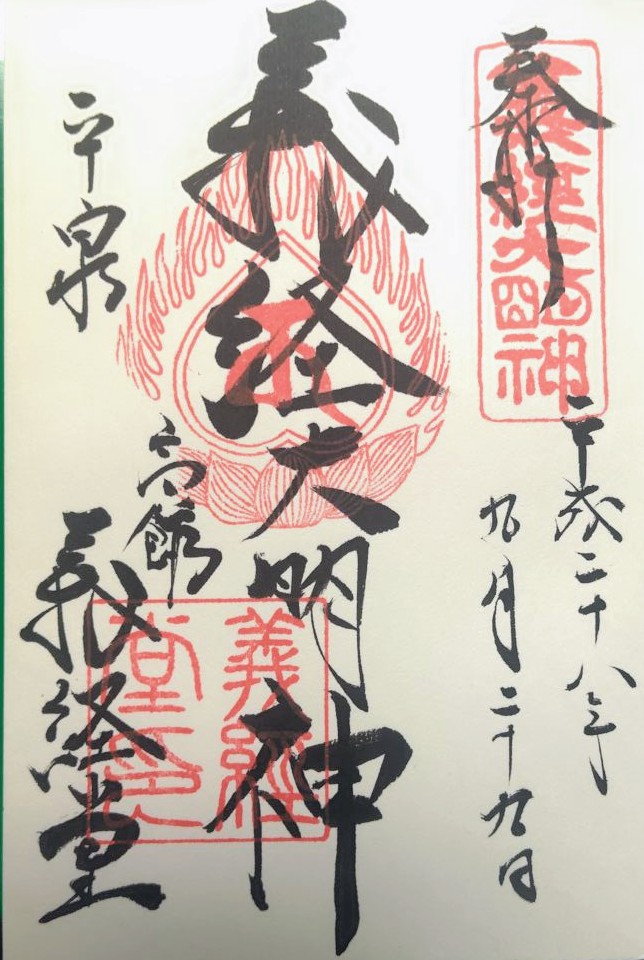 奉拝
義経大明神
平成二十八年
九月二十九日
義経大明神
平泉
高館
義経堂
義經堂印